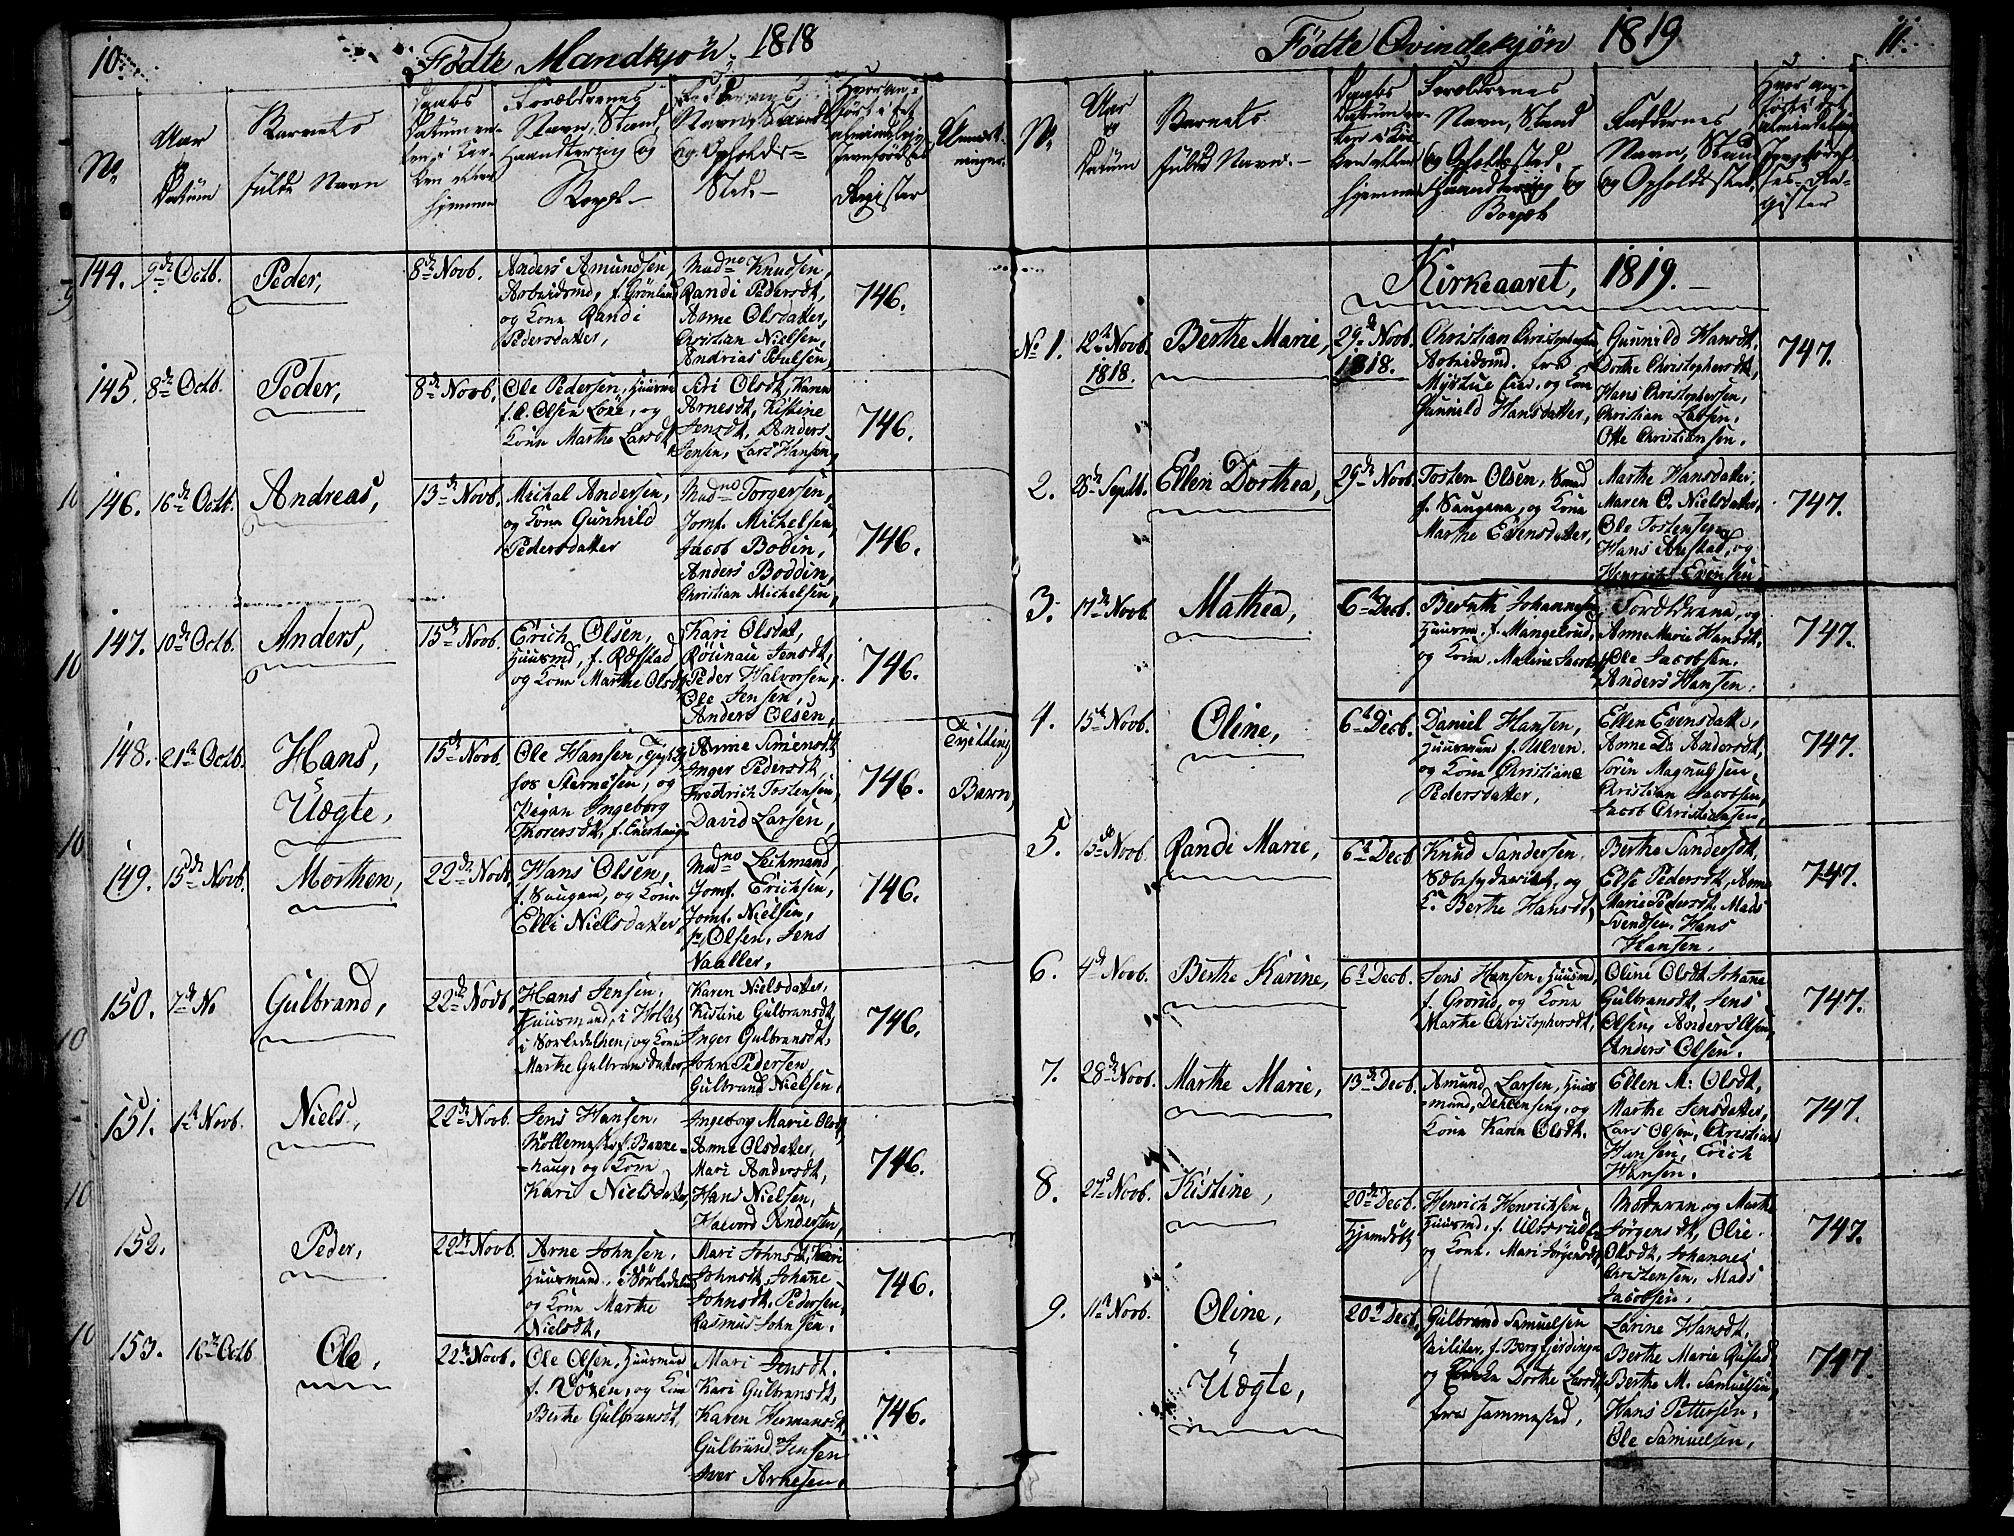 10
Födte Mandkjön. 1818
No
Aar
og
Datum
Barnets
fulde Navn
Daabs
Datum en-
ten i Kir-
ken eller
hjemme
Forældrenes
Navn, Stand,
Haandtering og
Bopæl
Faddernes
Navn, Stand
og Opholds-
Sted.
Hvor an-
ført i det
almindelig
Jevnførelses
Register
Anmærk-
ninger.
144. 9de Octb. Peder, 8de Novb.
Anders Amundsen,
Arbeidsmd, f. Grönland
og Kone Randi
Pedersdatter,
Madme Knudsen,
Randi Pedersdt,
Anne Olsdatter,
Christian Nielsen,
Andrias Poulsen,
746.
145. 8de Octb. Peder, 8de Novb.
Ole Pedersen, Huusmd
f. O. Olsen Löue, og
Kone Marthe Larsdt,
Siri Olsdt, Karen
Arnesdt, Kistine
Jensdt, Anders
Jensen, Lars Hansen,
746.
146. 16de Octb. Andreas, 13de Novb.
Michal Andersen,
og Kone Gunnild
Pedersdatter
Madme Torgersen,
Jomf. Michelsen,
Jacob Bodin,
Anders Boddin,
Christian Michelsen,
746.
147. 10de Octb. Anders, 15de Novb.
Erich Olsen,
Huusmd, f. Refstad,
og Kone Marthe Olsdt,
Kari Olsdat,
Rönnau Jensdt,
Peder Halvorsen,
Ole Jensen,
Anders Olsen,
746.
148. 21de Octb. Hans,
Uægte,
15de Novb.
Ole Hansen,
hos Sternesen, og
Pigen Ingeborg
Thorersdt, f. Enerhaugen
Anne Simensdt
Inger Pedersdt,
Frederich Tostensen,
David Larsen,
746.
Tvilling
Barn,
149. 15de Novb. Morthen, 22de Novb.
Hans Olsen,
f. Saugene, og Kone
Elli Nielsdatter,
Madme Leihmand,
Jomf. Erichsen,
Jomf. Nielsen,
Olsen, Jens
Vaaller,
746.
150. 7de No Gulbrand, 22de Novb.
Hans Jensen,
Huusmand, i
i Sörledalen, og Kone
Marthe Gulbrandsdatter,
Karen Nielsdatter,
Kistine Gulbransdt,
Inger Gulbransdt,
John Pedersen
Gulbrand Nielsen,
746.
151. 1te Novb. Niels, 22de Novb.
Jens Hansen,
Möllemester f. Banne-
-haug, og Kone
Kari Nielsdatter,
Ingeborg Marie Olsdt,
Anne Olsdatter,
Mari Andersdt,
Hans Nielsen,
Halvord Andersen,
746.
152. Peder, 22de Novb.
Arne Johnsen,
Huusmand, i Sörledalen
og Kone Marthe
Nielsdt,
Mari Johnsdt, Kari
Johnsdt, Johanne
Johnsdt, Pedersen,
Rasmus Johnsen.
746.
153. 16de Octb Ole, 22de Novb.
Ole Olsen, Huusmand
f. Lören, og Kone
Berthe Gulbransdt,
Mari Jensdt,
Kari Gulbransdt,
Karen Hermansdt,
Gulbrund Jensen
Iver Arnesen,
746.
Födte Qvindekjön 1819
11
No
Aar
og
Datum
Barnets
fulde Navn.
Daabs
Datum en-
ten i Kir-
ken eller
hjemme
Forældrenes
Navn, Stand
og Opholdssted.
Haandtering og
Bopæl
Faddernes
Navn, Stand
og Opholdssted.
Hvor an-
förts i det
almindelige
Jevnförel-
ses-Re-
gister
Kirkeaaret, 1819.
No 1. 12te Novb.
1818.
Berthe Marie, 29de Novb.
1818.
Christian Christophersen
Arbeidsmd. fra
og Kone
Gunnild Hansdatter,
Gunnild Hansdt,
Dorthe Christophersdt,
Hans Christophersen,
Christian Larsen,
Otte Christiansen.
747.
2. 28de Septb. Ellen Dorthea, 29de Novb.
Tosten Olsen,
f. Saugene, og Kone
Marthe Evensdatter,
Marthe Hansdatter,
Maren O. Nielsdatter,
Ole Tostensen,
Hans Austad, og
Henrich Evensen
747.
3. 17de Novb. Mathea, 6te Decb.
Bernth Johannesen
Huusmd, f. Mangelrud,
og Kone Maline Jacobsdt,
Forældrene, og
Anne Marie Hansdt,
Ole Jacobsen,
Anders Hansen,
747.
4. 15de Novb. Oline, 6te Decb.
Daniel Hansen,
Huusmand f. Ulven.
og Kone Christiane
Pedersdatter,
Ellen Evensdatter,
Anne D. Andersdt,
Sören Magnussen,
Christian Jacobsen,
Jacob Christiansen,
747.
5. 15de Novb. Randi Marie, 6te Decb
Knud Sandersen,
Sæbesyderiet, og
K. Berthe Hansdt,
Berthe Sandersdt,
Else Pedersdt, Anne
Marie Pedersdt, Mads
Svendsen, Hans
Hansen,
747.
6. 4de Novb. Berthe Karine, 6te Decb.
Jens Hansen, Huusmd,
f. Grorud, og Kone
Marthe Christophersdt,
Oline Olsdt, Johanne
Gulbransdt, Jens
Olsen, Anders Olsen,
Anders Olsen.
747.
7. 28de Novb. Marthe Marie, 13de Decb.
Amund Larsen, Huus
-mand, Dehlenseng, og
Kone Karen Olsdt.
Ellen M: Olsdt,
Marthe Jensdatter,
Lars Olsen, Christian
Hansen, Erich
Hansen.
747.
8. 27de Novb. Kistine, 20de Decb.
Hjemdöbt,
Henrich Henrichsen,
Huusmd, f. Ulsrud,
og Kone. Mari Jörgensdt,
Moderen, og Marthe
Jörgensdt, Olie
Olsdt, Johannes
Christensen, Mads
Jacobsen,
747.
9. 11te Novb. Oline,
Uægte,
20de Decb.
Gulbrand Samuelsen
Militær, f. Bergfjerdingen
og Dorthe Larsdt,
fra Tammestad,
Larine Hansdt,
Berthe Marie Rustad,
Berthe M. Samuelsen,
Hans Pettersen,
Ole Samuelsen,
747.